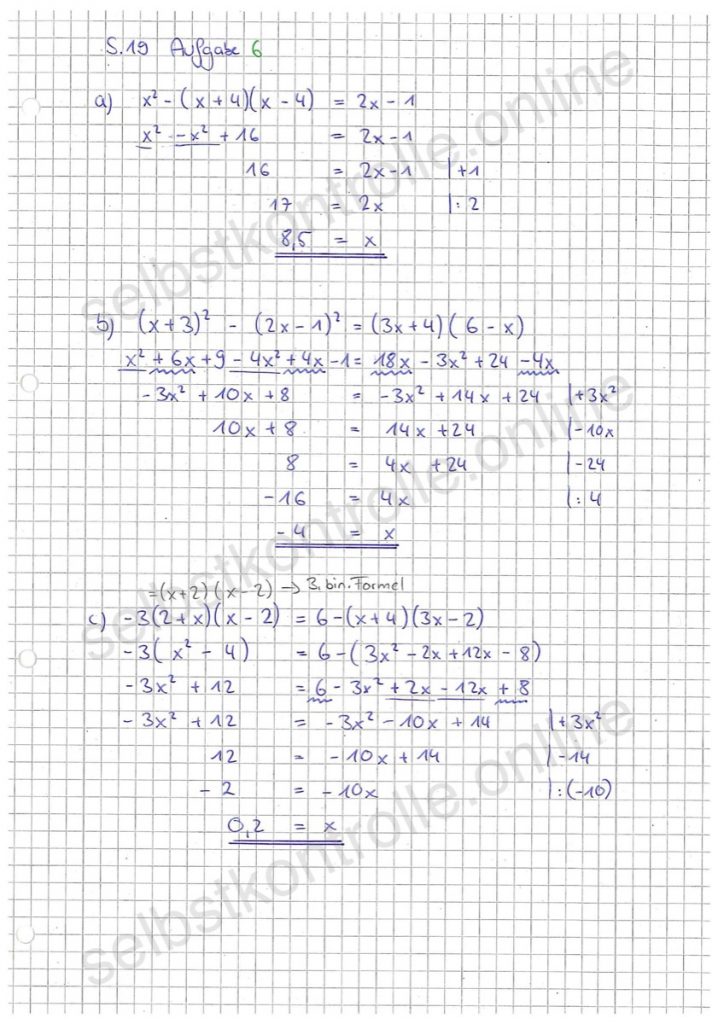 S.19 Aufgabe 6
a) x² - (x+4)(x-4) = 2x-1
x² -x² +16 = 2x-1
16 = 2x-1 |+1
17 = 2x |:2
8,5 = x
b) (x+3)² - (2x-1)² = (3x+4)(6-x)
x² + 6x + 9 - 4x² + 4x - 1 = 18x - 3x² + 24 - 4x
-3x² + 10x + 8 = -3x² + 14x + 24 |+3x²
10x + 8 = 14x + 24 |-10x
8 = 4x + 24 |-24
-16 = 4x |:4
-4 = x
=(x+2)(x-2) → 3. bin. Formel
c) -3(2+x)(x-2) = 6-(x+4)(3x-2)
-3(x² - 4) = 6-(3x² - 2x + 12x - 8)
-3x² + 12 = 6 - 3x² + 2x - 12x + 8
-3x² + 12 = -3x² - 10x + 14 |+3x²
12 = -10x + 14 |-14
-2 = -10x |:(-10)
0,2 = x
selbstkontrolle.online
selbstkontrolle.online
selbstkontrolle.online